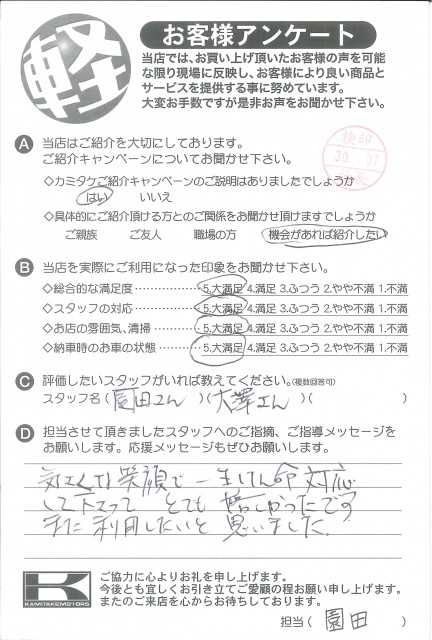 軽
お客様アンケート
当店では、お買い上げ頂いたお客様の声を可能
な限り現場に反映し、お客様により良い商品と
サービスを提供する事に努めています。
大変お手数ですが是非お声をお聞かせ下さい。
A 当店はご紹介を大切にしております。
ご紹介キャンペーンについてお聞かせ下さい。
検印
30. 07
◇カミタケご紹介キャンペーンのご説明はありましたでしょうか
はい いいえ
◇具体的にご紹介頂ける方とのご関係をお聞かせ頂けますでしょうか
ご親族 ご友人 職場の方 機会があれば紹介したい
B 当店を実際にご利用になった印象をお聞かせ下さい。
◇総合的な満足度……………5.大満足 4.満足 3.ふつう 2.やや不満 1.不満
◇スタッフの対応……………5.大満足 4.満足 3.ふつう 2.やや不満 1.不満
◇お店の雰囲気、清掃…………5.大満足 4.満足 3.ふつう 2.やや不満 1.不満
◇納車時のお車の状態…………5.大満足 4.満足 3.ふつう 2.やや不満 1.不満
C 評価したいスタッフがいれば教えてください。(複数回答可)
スタッフ名(園田さん)(大澤さん)( )
D 担当させて頂きましたスタッフへのご指摘、ご指導メッセージを
お願いします。応援メッセージもぜひお願いします。
気さくな笑顔で一生けん命対応
して下さって とても嬉しかったです
また利用したいと思いました。
K
KAMITAKEMOTORS
ご協力に心よりお礼を申し上げます。
今後とも宜しくお引き立てご愛顧の程お願い申し上げます。
またのご来店を心からお待ちしております。
担当(園田)